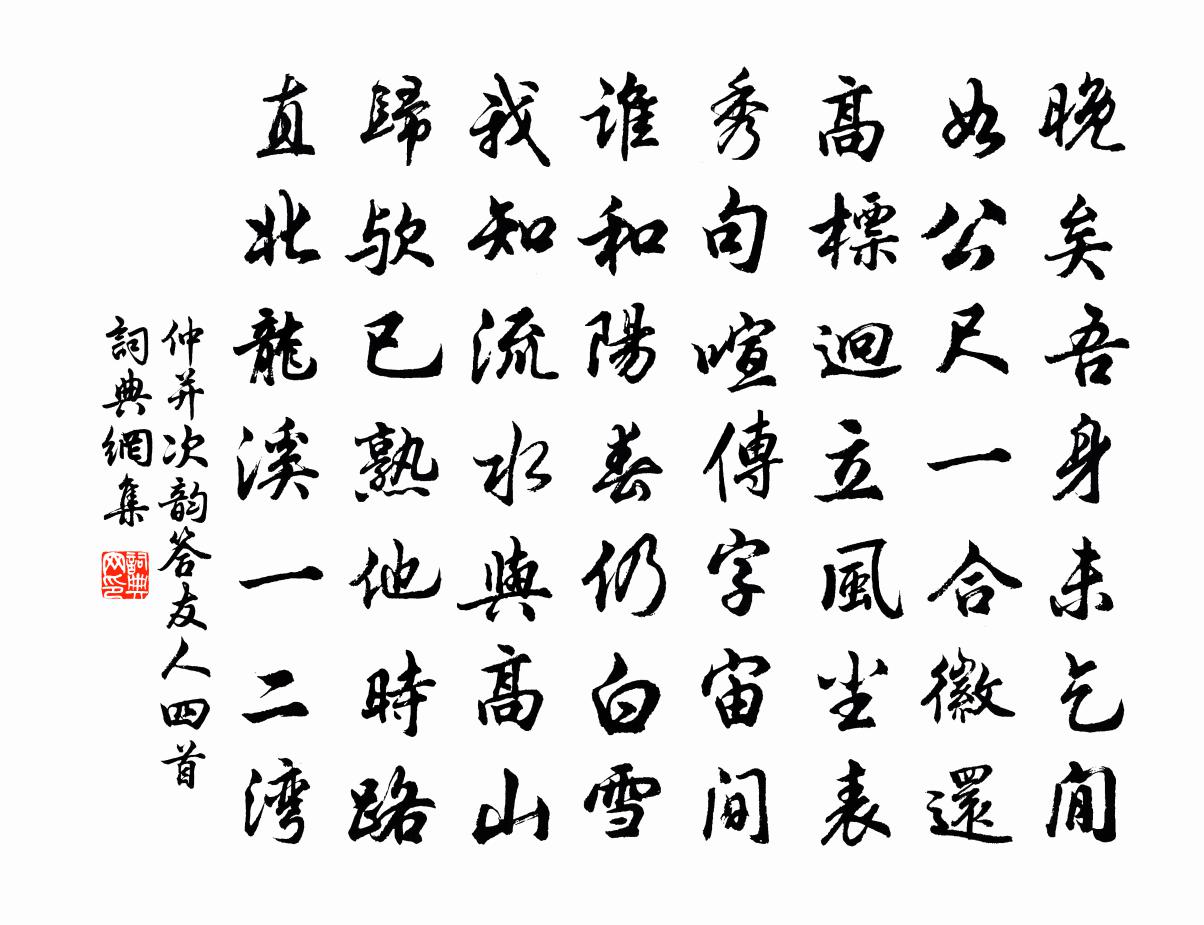 晚矣吾身未乞閒
如公尺一合徽還
高標迥立風尘表
秀句喧傳宇宙間
誰和陽春仍白雪
我知流水與高山
歸歟已熟他時路
直北龍溪一二湾
仲并次韵答友人四首
詞典網集
詞典网印